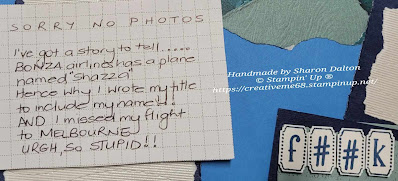 SORRY NO PHOTOS
I've got a story to tell.....
BONZA airlines has a plane
named "Shazza"
Hence why I wrote my title
to include my name!!!
AND I missed my flight
to MELBOURNE
URGH, SO STUPID!!
Handmade by Sharon Dalton
© Stampin' Up ®
https://creativeme68.stampinup.net/
f##k